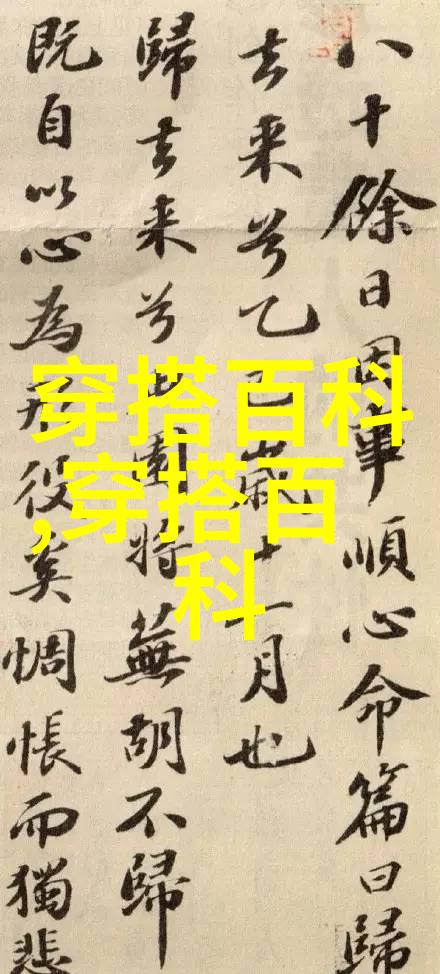 八十餘日因事順心命篇曰歸
去来兮乙巳歲十一月也
歸去来兮田園将蕪胡不歸
既自以心為形役奚惆悵而獨悲
穿搭百科
,穿搭百
科